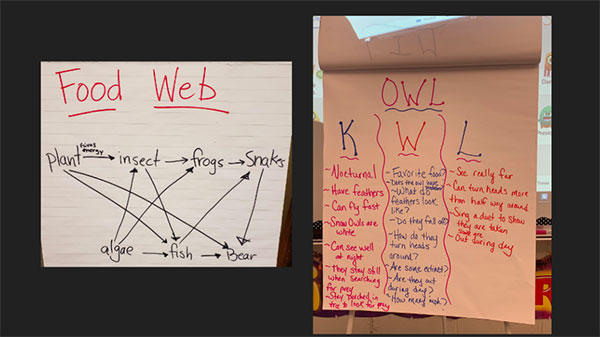 Food Web
gives
energy
plant insect frogs Snakes
algae fish Bear
OWL
K
- Nocturnal
- Have feathers
- Can fly fast
- Snow Owls are
white
- Can see well
at night
- They stay still
when searching
for prey
- Stay perched in
tree to look for prey
W
- Favorite food?
- Does the owl have
- What do
feathers look
like?
- Do they fall off?
- How do they
turn heads
around?
- Are some extinct?
- Are they out
during day?
- How many
L
- See really far
- Can turn heads more
than half way around
- Sing a duet to show
they are taken
- Out during day